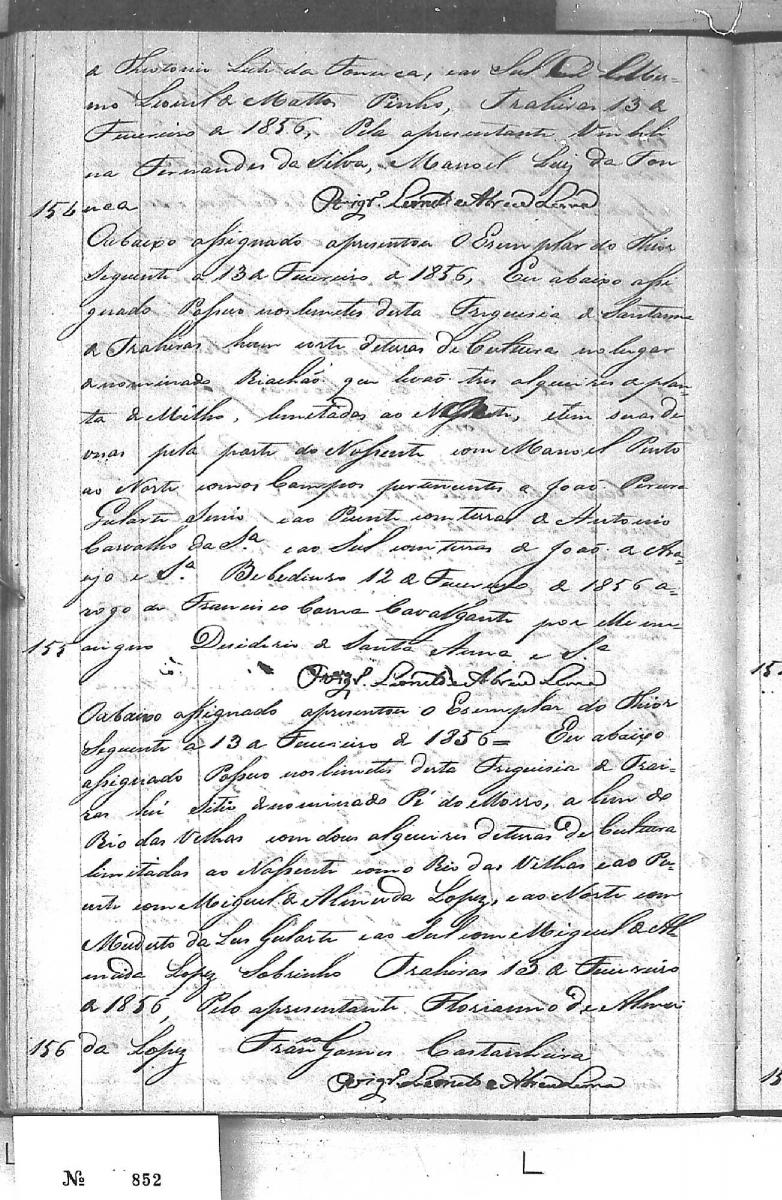 de Theotonio Luis da Fonseca, e ao Sul
mo Leonel de Mattos Pinho, Trahiras 13 de
Fevereiro de 1856, Pela apresentante
na Fernandes da Silva, Manoel Luiz da Fon
154 ceca Vigr.º Leonel de Abreu Lima
O abaixo assignado apresentou o Exemplar do Theor
Seguente a 13 de Fevereiro de 1856, Eu abaixo assi
gnado Possuo nos limetes desta Freguesia de Santanna
de Trahiras huma sorte de terras de Cultura no lugar
denominado Riachão que levão tres alqueires de plan
ta de Milho, limitadas ao e tem suas de
visas pela parte do Nassente com Manoel Pinto
ao Norte com os Campos pertencentes a João Pereira
Gularte e ao Puente com terras de Antonio
Carvalho da S.ª e ao Sul com terras de João de Ara
ujo e S.ª Bebedouro 12 de Fevereiro de 1856 a
rogo de Francisco Cavalgante por elle me
155 asigno Desiderio de Santa Anna e S.ª
Vigr.º Leonel de Abreu Lima
O abaixo assignado apresentou o Exemplar do Theor
Seguente a 13 de Fevereiro de 1856 = Eu abaixo
assignado Possuo nos limetes desta Freguesia de Trai
ras hú Sitio denominado Pé do Morro, a lem do
Rio das Velhas com dous alqueires de terras de Cultura
limitadas ao Nassente com o Rio das Velhas e ao Pu
ente com Miguel de Almeida Lopez, e ao Norte com
Modesto da Luz Gularte e ao Sul com Miguel de Al
meida Lopez Sobrinho Trahiras 13 de Fevereiro
de 1856, Pelo apresentante Florianno de Almei
156 da Lopez Fran.ca Gomes Castanheira
Vigr.º Leonel de Abreu Lima
15
15
Nº 852